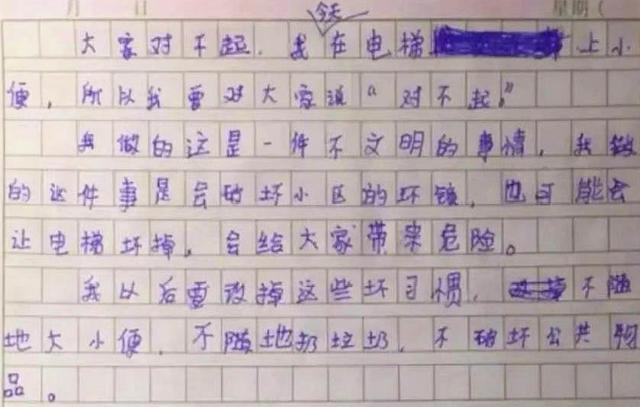 月 日 星期(
今天
大家对不起. 我在电梯上小
便,所以我要对大家说“对不起。”
我做的这是一件不文明的事情,我做
的这件事是会破坏小区的环镜,也可能会
让电梯坏掉,会给大家带来危险。
我以后要改掉这些坏习惯,不随
地大小便,不随地扔垃圾,不破坏公共物
品。